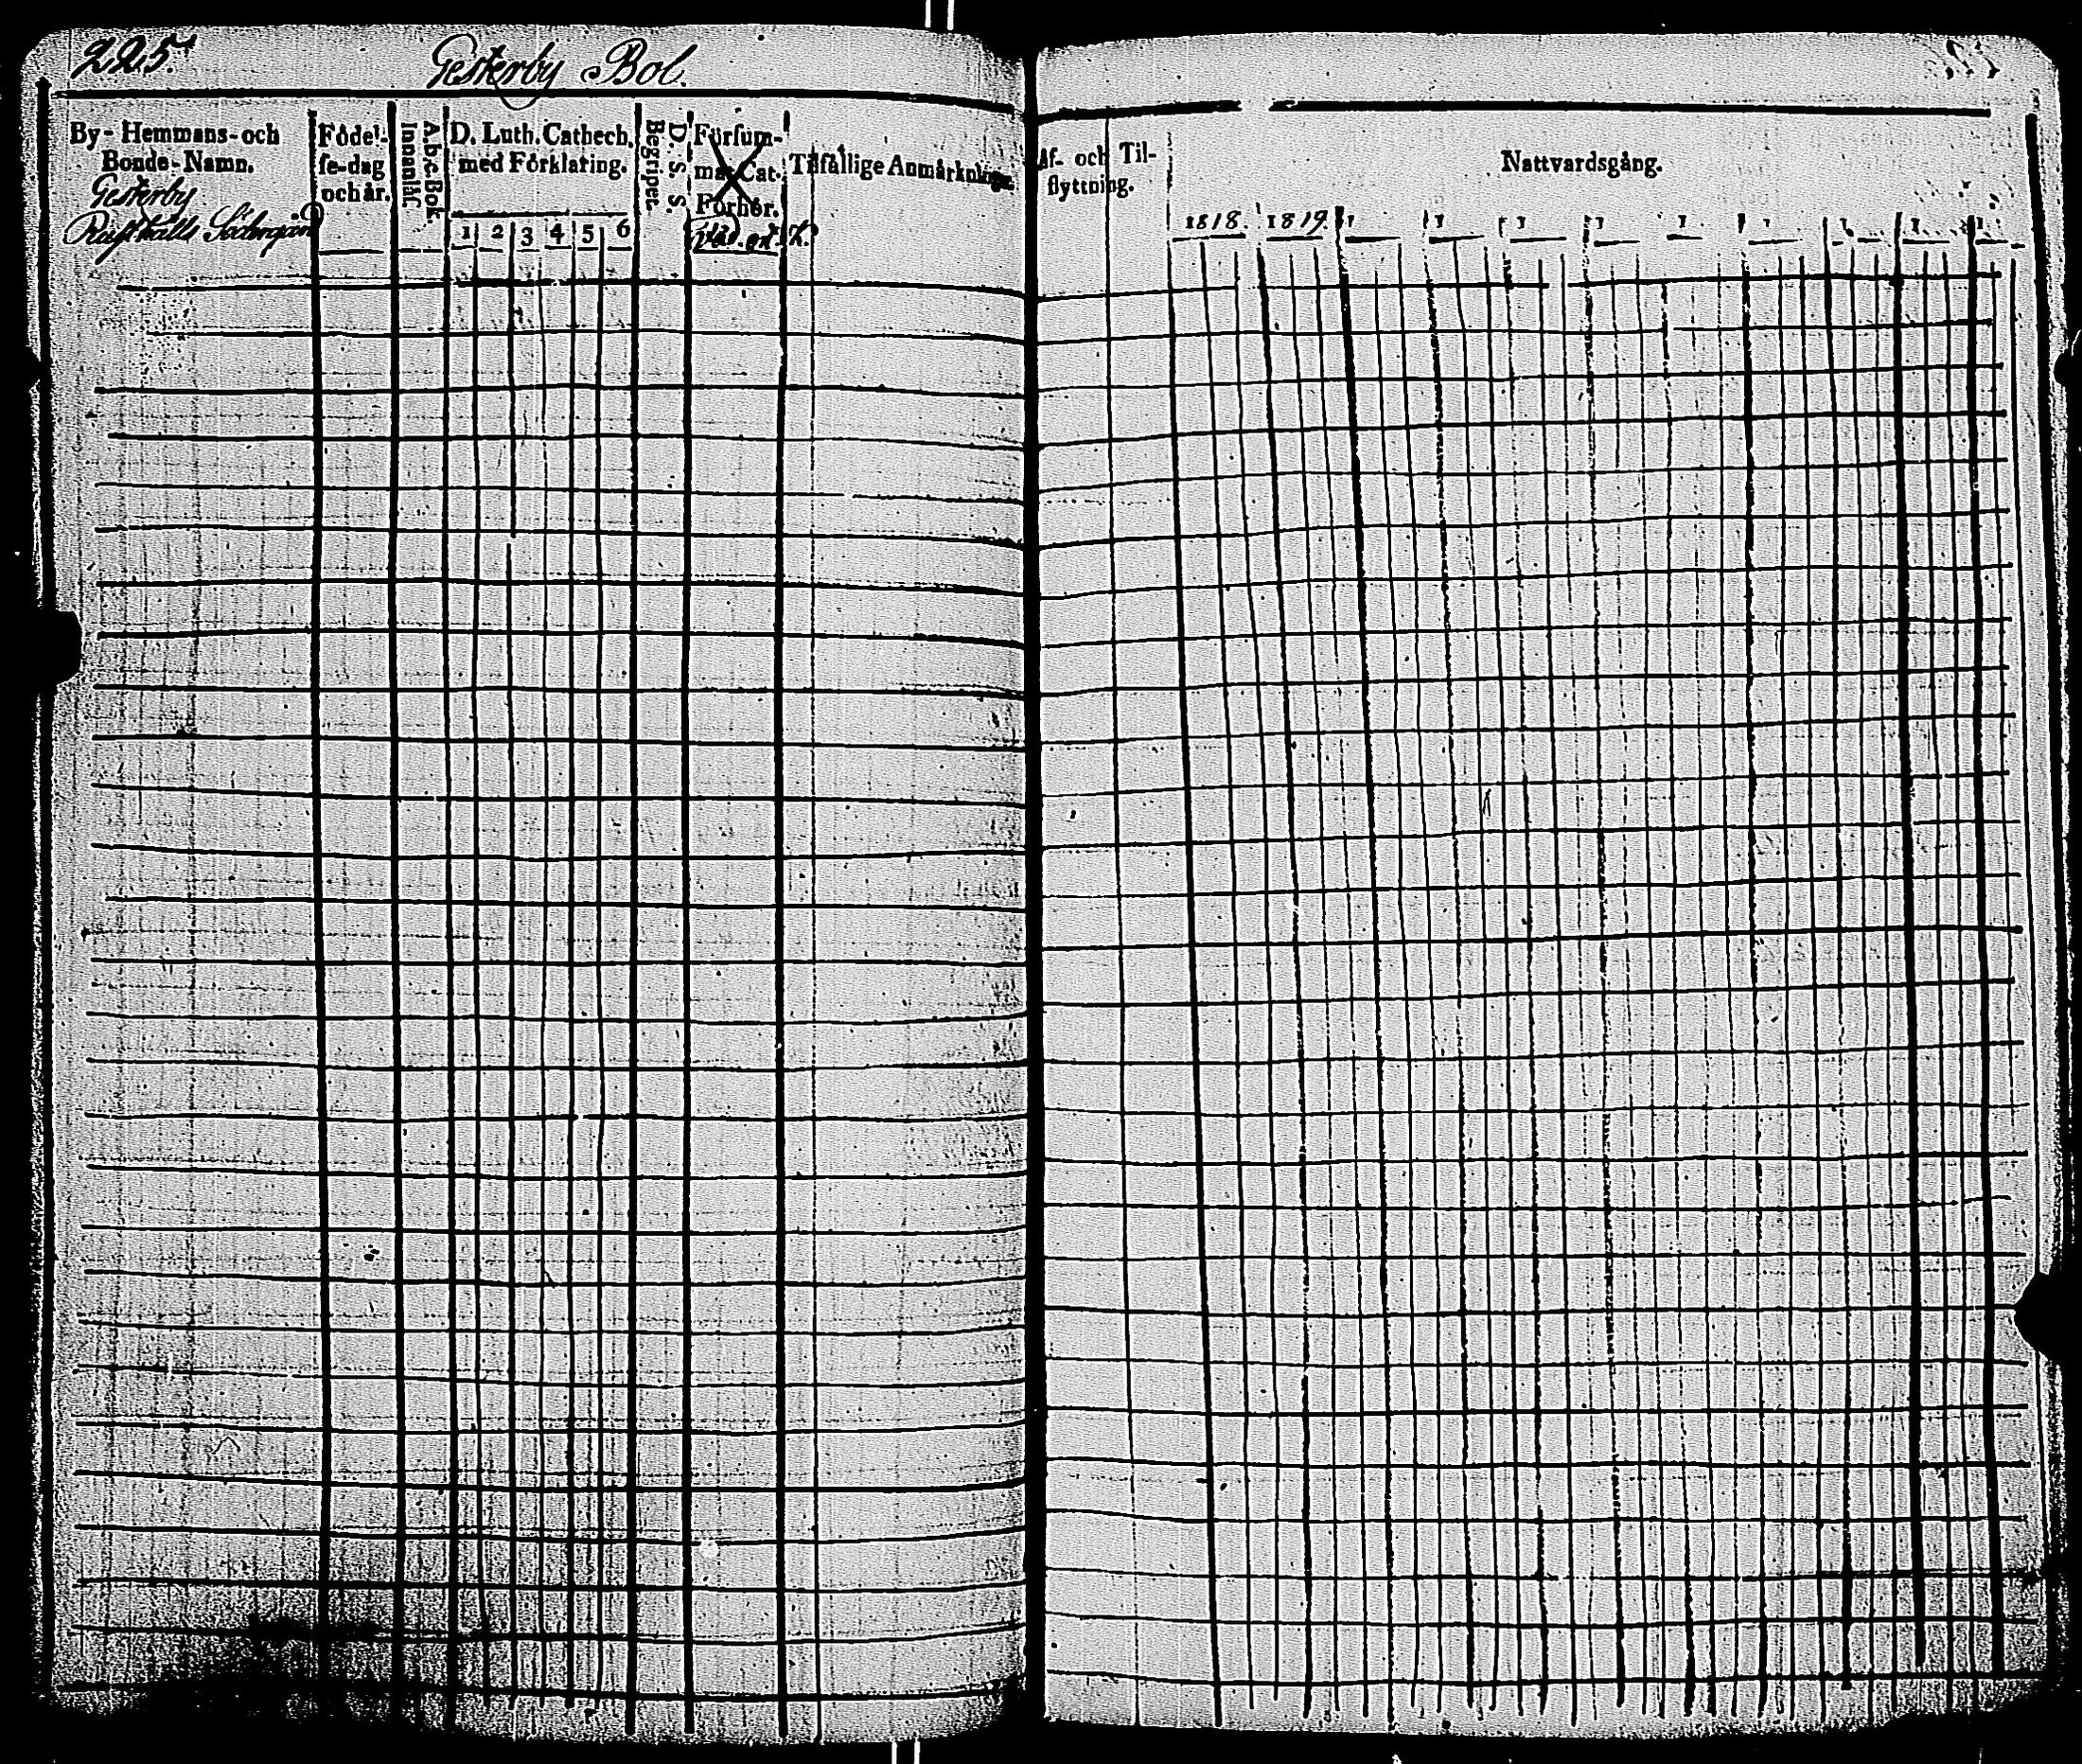 225.
Gesterby Bol.
By- Hemmans- och
Bonde-Namn.
Gesterby
Rusthålls
Födel-
se-dag
och år.
A.b.c. Bok.
Innanläs.
D. Luth. Cathech.
med Förklaring.
1 2 3 4 5 6
D. S. S.
Begripet.
Försum-
mat Cat.
Förhör.
Tilfällige Anmärkningar.
Af- och Til-
flyttning.
Nattvardsgång.
1818. 1819. 1 1 1 1 1 1 1 1 1